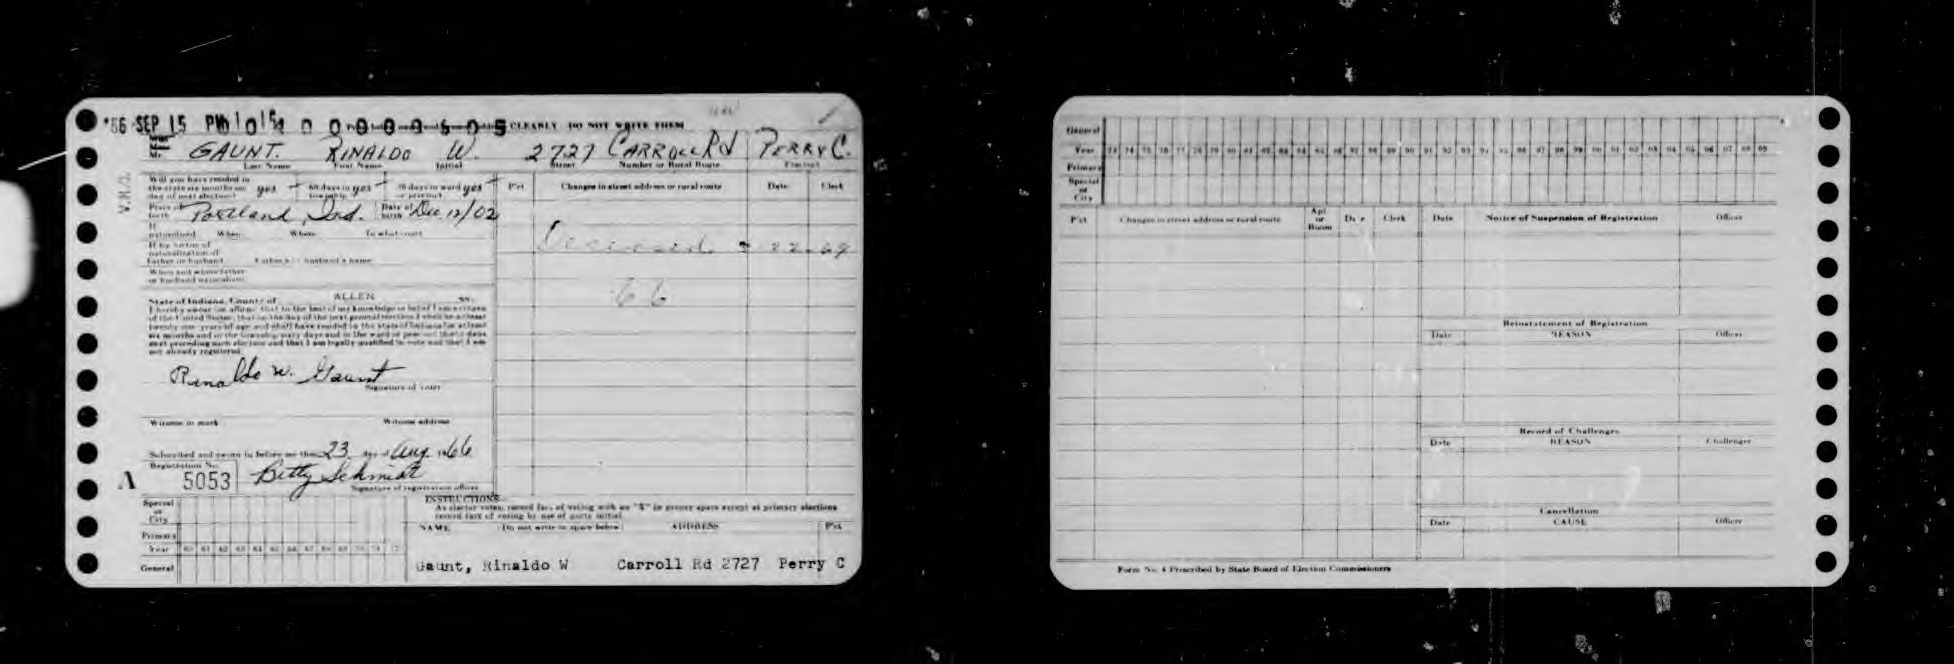 SEP 15 PM CLEARLY DO NOT WRITE THEM
Mr. GAUNT. RINALDO W. 2727 CARROLL Rd PERRY C.
Last Name First Name Initial Street Number or Rural Route Precinct
Will you have resided in
the state six months on yes 60 days in yes 30 days in ward yes
day of next election? township? or precinct
P'ct Changes in street address or rural route Date Clerk
Place of birth Portland, Ind. Date of birth Dec 12/02
If
naturalized When Where In what court
Deceased 22-69
If by virtue of
naturalization of
Father or husband Father's husband's name
When and where father
or husband naturalized
66
State of Indiana, County of ALLEN ss.
I hereby swear (or affirm) that to the best of my knowledge or belief I am a citizen
of the United States, that on the day of the next general election I shall be at least
twenty-one years of age and shall have resided in the state of Indiana for at least
six months and in the township sixty days and in the ward or precinct thirty days
next preceding such election and that I am legally qualified to vote and that I am
not already registered.
Rinaldo W. Gaunt
Signature of voter
Witness to mark Witness address
Subscribed and sworn to before me this 23 day of Aug. 1966
Registration No.
A 5053 Betty Schmidt
Signature of registration officer
INSTRUCTIONS
As elector votes, record fact of voting with an "X" in proper space except at primary elections
record fact of voting by use of party initial.
Special
or
City
NAME (Do not write in space below) ADDRESS P'ct
Primary
Year 60 61 62 63 64 65 66 67 68 69 70 71 72
General
Gaunt, Rinaldo W Carroll Rd 2727 Perry C
V.H.G.
General
Year 73 74 75 76 77 78 79 80 81 82 83 84 85 86 87 88 89 90 91 92 93 94 95 96 97 98 99 00 01 02 03 04 05 06 07 08 09
Primary
Special
or
City
P'ct Changes in street address or rural route Apt. or Room Date Clerk Date Notice of Suspension of Registration Officer
Reinstatement of Registration
Date REASON Officer
Record of Challenges
Date REASON Challenger
Cancellation
Date CAUSE Officer
Form No. 4 Prescribed by State Board of Election Commissioners